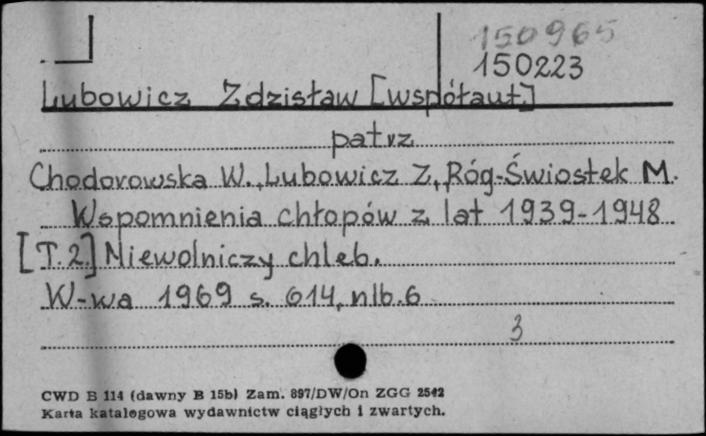 150965
150223
Lubowicz Zdzisław [współaut.]
patrz
Chodorowska W., Lubowicz Z., Róg-Świostek M.
Wspomnienia chłopów z lat 1939-1948
[T. 2.] Niewolniczy chleb.
W-wa 1969 s. 614, nlb. 6
3
CWD B 114 (dawny B 15b) Zam. 897/DW/On ZGG 2542
Karta katalogowa wydawnictw ciągłych i zwartych.